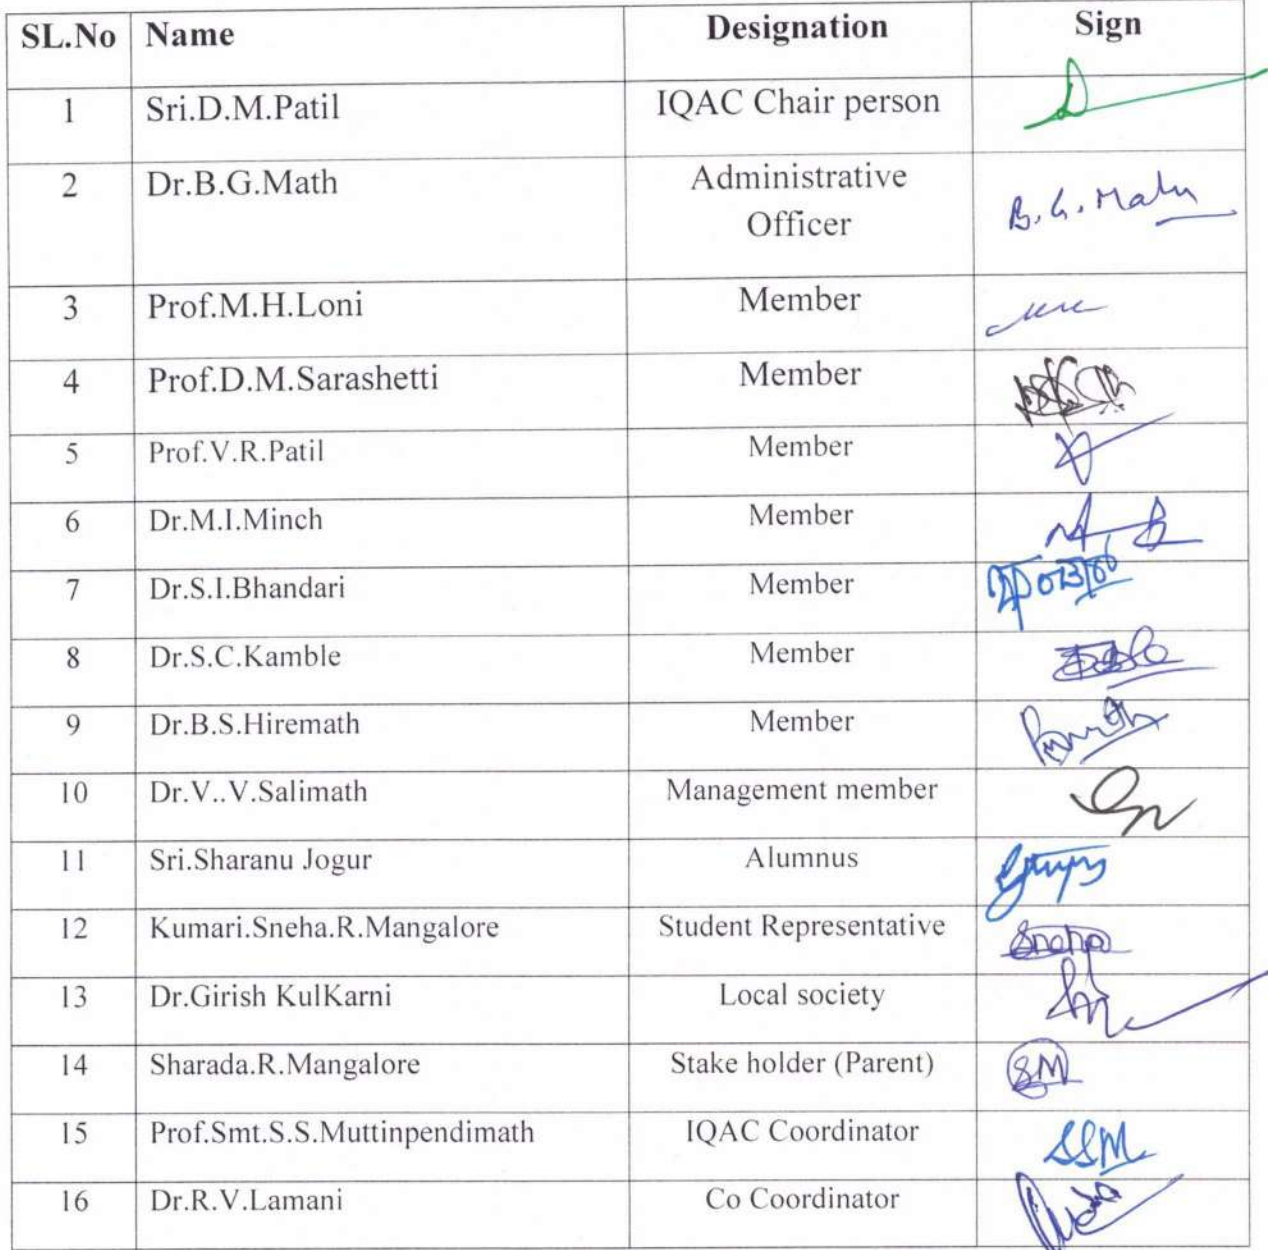 SL.No Name Designation Sign
1 Sri.D.M.Patil IQAC Chair person
2 Dr.B.G.Math Administrative
Officer B.G.Math
3 Prof.M.H.Loni Member
4 Prof.D.M.Sarashetti Member
5 Prof.V.R.Patil Member
6 Dr.M.I.Minch Member
7 Dr.S.I.Bhandari Member
8 Dr.S.C.Kamble Member
9 Dr.B.S.Hiremath Member
10 Dr.V..V.Salimath Management member
11 Sri.Sharanu Jogur Alumnus
12 Kumari.Sneha.R.Mangalore Student Representative Sneha
13 Dr.Girish KulKarni Local society
14 Sharada.R.Mangalore Stake holder (Parent) SM
15 Prof.Smt.S.S.Muttinpendimath IQAC Coordinator SSM
16 Dr.R.V.Lamani Co Coordinator